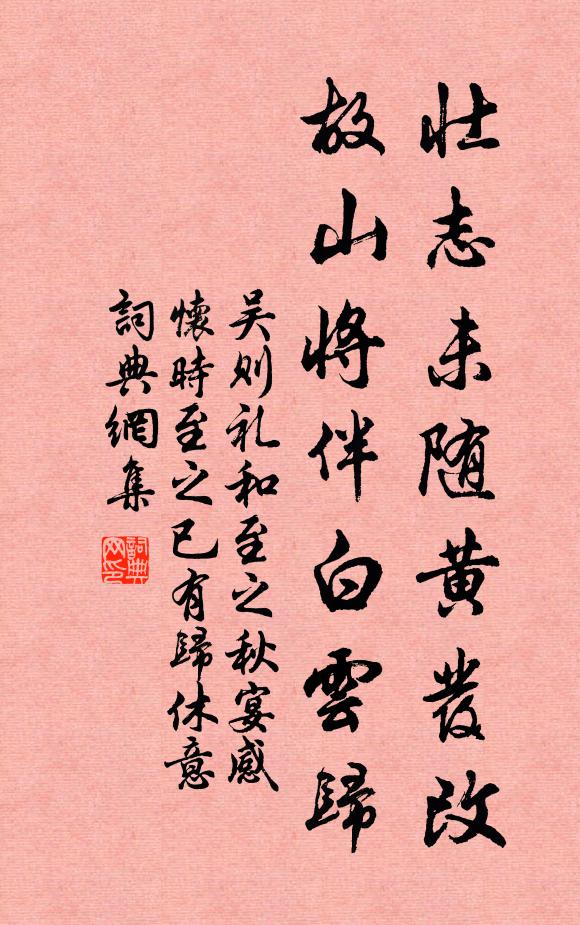 壮志未随黄發改
故山将伴白雲歸
吴则礼和至之秋宴感
懷時至之已有歸休意
詞典網集
詞典网印